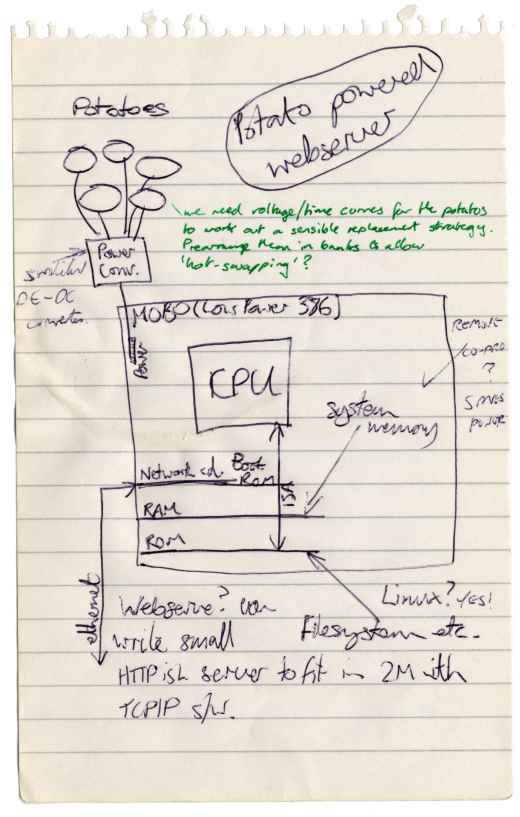 Potato powered
webserver
Potatoes
we need voltage/time curves for the potatos
to work out a sensible replacement strategy.
Prearrange them in banks & allow
'hot-swapping'?
Power
Conv.
DC-DC
converter.
MOBO (Low Power 386)
Power
REMOVE
?
SAVES
POWER
CPU
System
memory
Network cd. Boot
ROM
ISA
RAM
ROM
ethernet
Linux? YES!
Filesystem etc.
Webserve? can
write small
HTTPish server to fit in 2M with
TCPIP s/w.